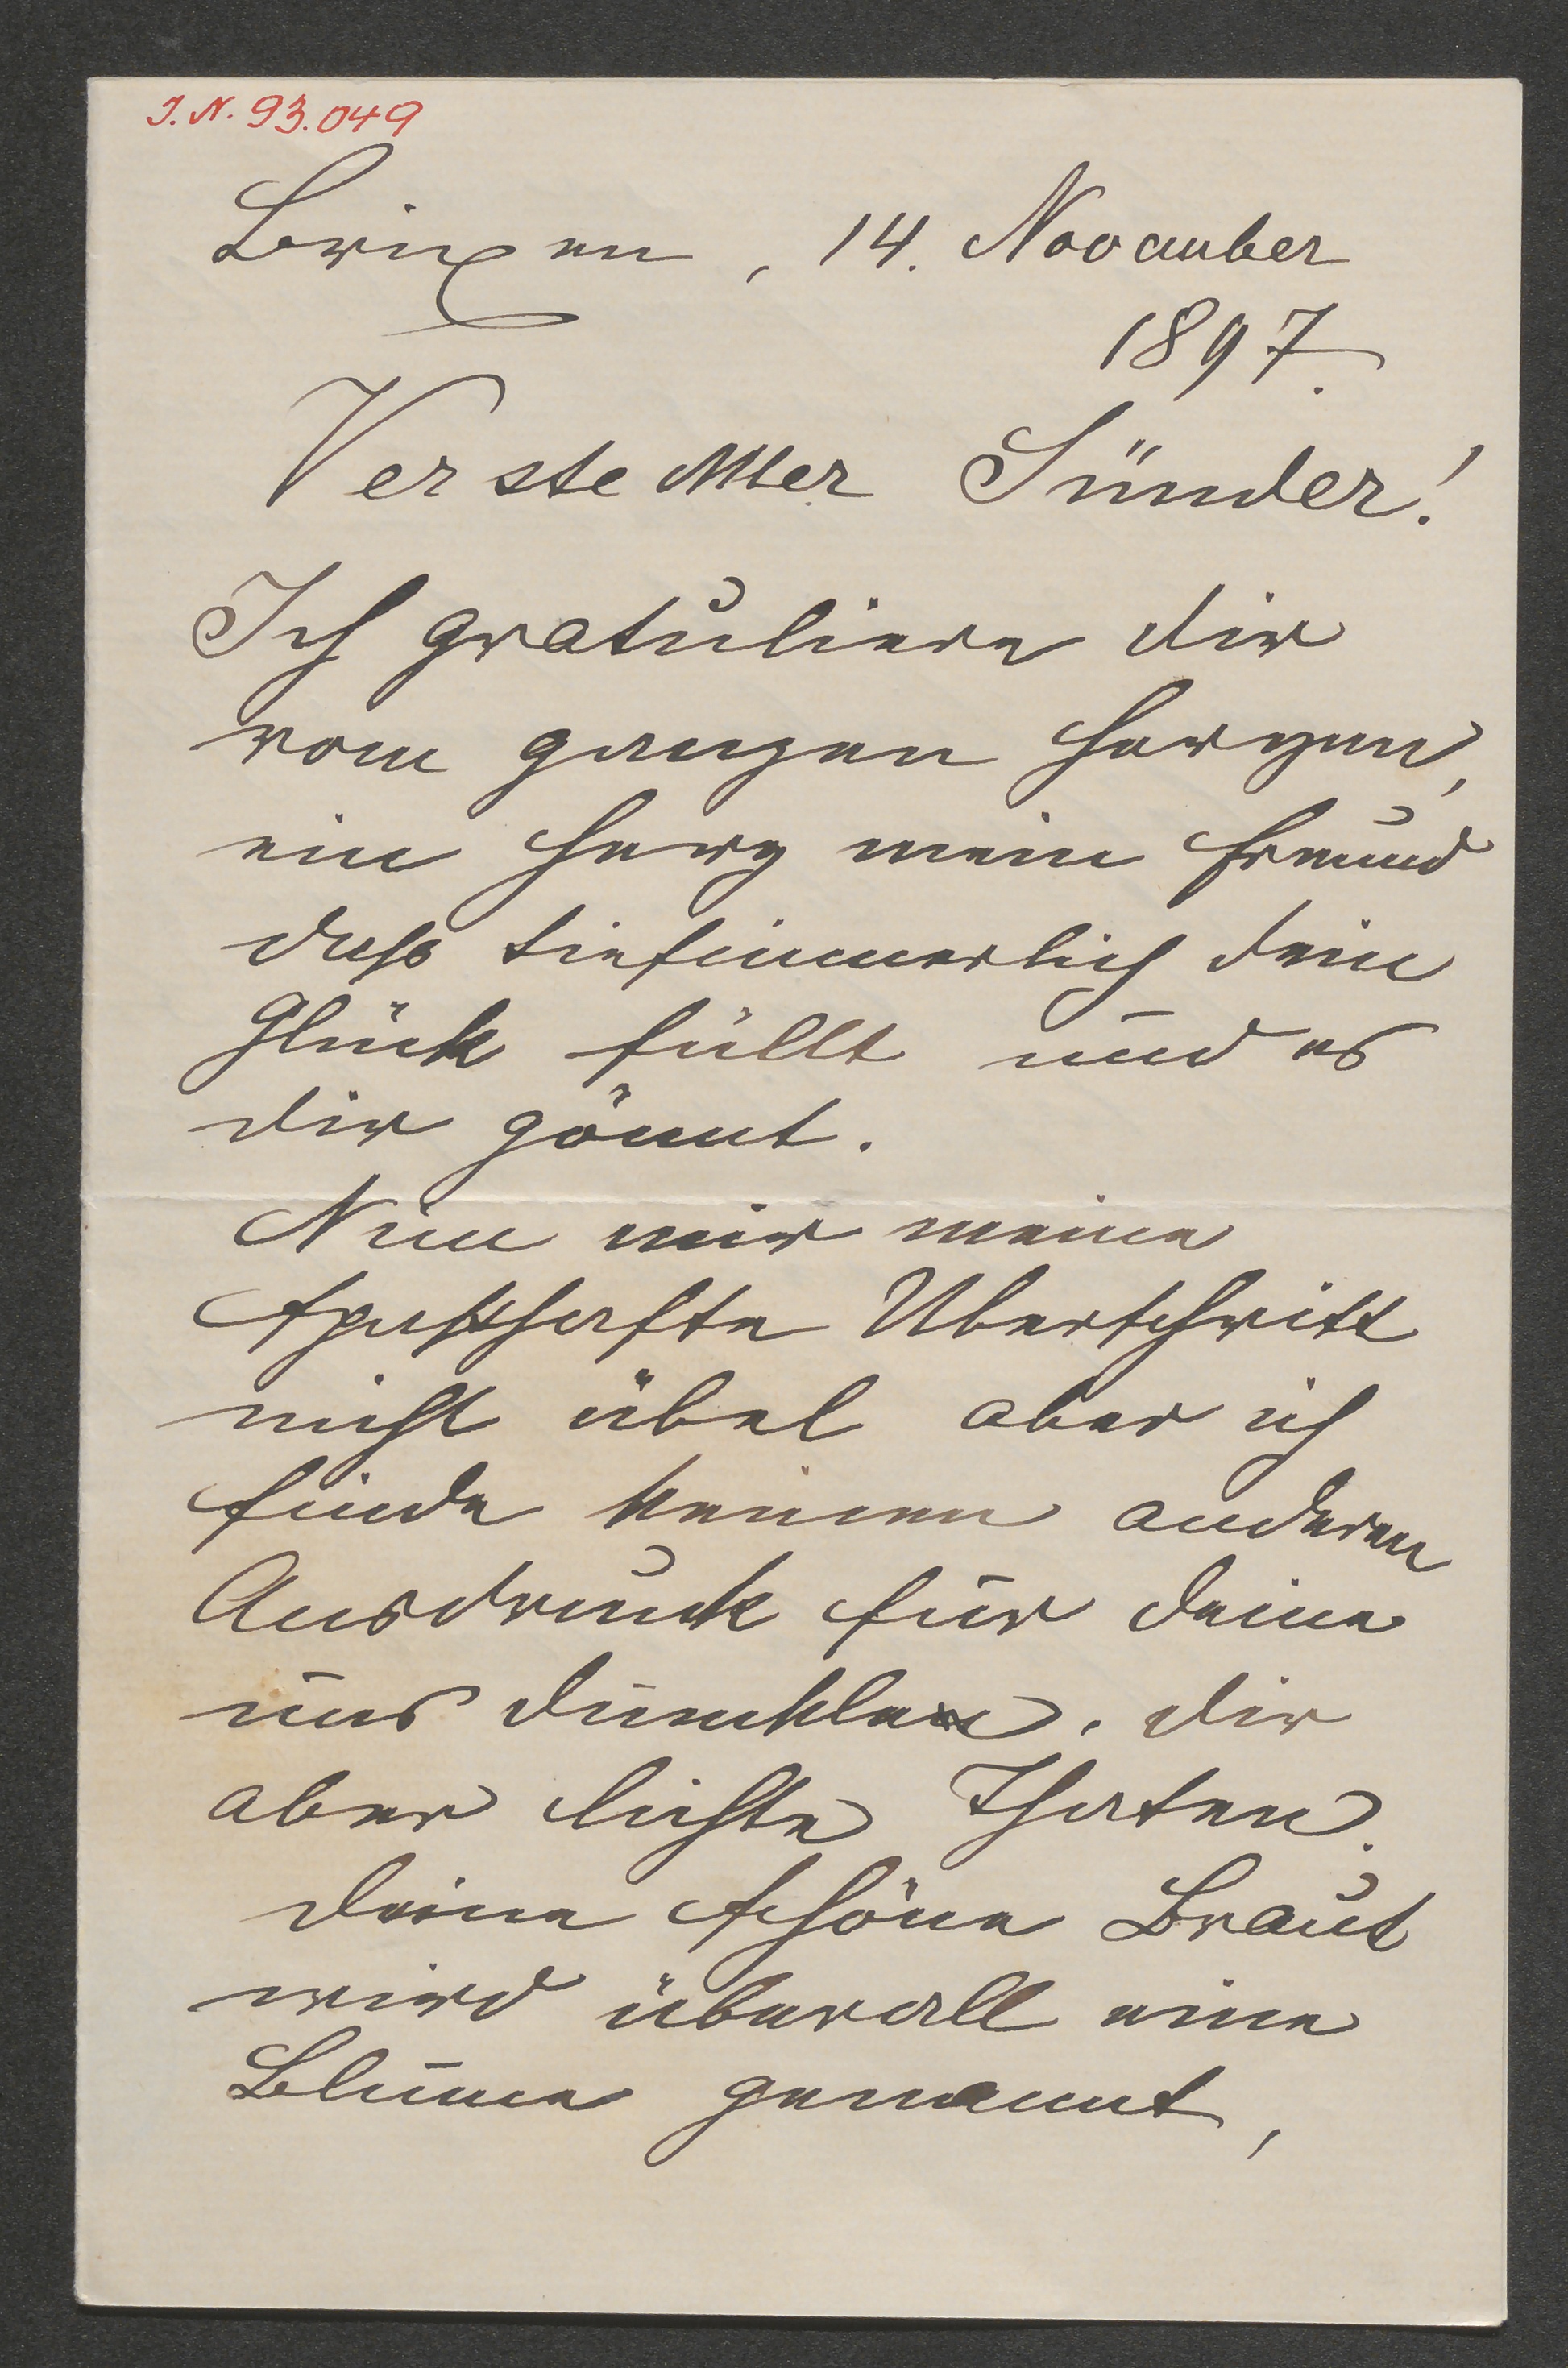 I.N. 93.049
Brixen, 14. November
1897.
Verstockter Sünder!
Ich gratuliere dir
vom ganzen Herzen,
ein Herz mein Freund
dass tiefinnerlich dein
Glück füllt und es
dir gönnt.
Nim mir meine
spasshafte Uberschrift
nicht übel aber ich
finde keinen anderen
Ausdruck für deine
uns dunklen, dir
aber lichte Thaten.
Deine schöne Braut
wird überall eine
Blume genannt,